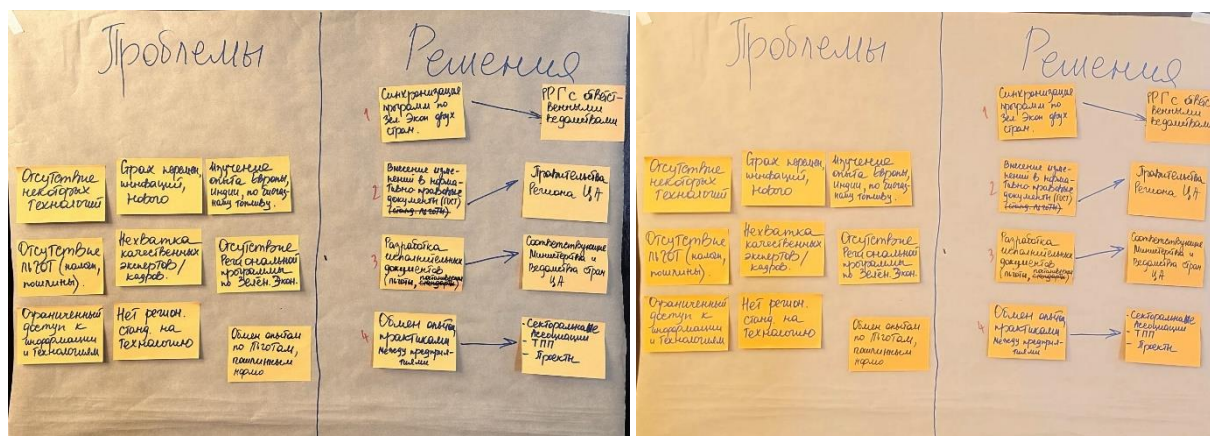 Проблемы
Решения
Отсутствие
некоторых
технологий
Страх перемен,
инноваций,
нового
Изучение
опыта Европы,
Индии, по
топливу.
Отсутствие
льгот (налоги,
пошлины).
Нехватка
качественных
экспертов/
кадров.
Отсутствие
Региональной
программы
по Зелен. Экон.
Ограниченный
доступ к
информации
и технологиям
Нет регион.
станд. на
технологию
Обмен опытом
по льготам,
пошлинным
1
Синхронизация
программ по
Зел. Экон двух
стран.
РРГ с ответст-
венными
ведомствами
2
Внесение изме-
нений в норма-
тивно правовые
документы (ГОСТ)
Правительства
Региона ЦА
3
Разработка
исполнительных
документов
(льготы,
Соответствующие
Министерства и
Ведомства стран
ЦА
4
Обмен опыта,
практиками
между предпри-
ятиями
- Секторальные
Ассоциации
- ТПП
- Проекты
Проблемы
Решения
Отсутствие
некоторых
технологий
Страх перемен,
инноваций,
нового
Изучение
опыта Европы,
Индии, по
топливу.
Отсутствие
льгот (налоги,
пошлины).
Нехватка
качественных
экспертов/
кадров.
Отсутствие
Региональной
программы
по Зелен. Экон.
Ограниченный
доступ к
информации
и технологиям
Нет регион.
станд. на
технологию
Обмен опытом
по льготам,
пошлинным
1
Синхронизация
программ по
Зел. Экон двух
стран.
РРГ с ответст-
венными
ведомствами
2
Внесение изме-
нений в норма-
тивно правовые
документы (ГОСТ)
Правительства
Региона ЦА
3
Разработка
исполнительных
документов
(льготы,
Соответствующие
Министерства и
Ведомства стран
ЦА
4
Обмен опыта,
практиками
между предпри-
ятиями
- Секторальные
Ассоциации
- ТПП
- Проекты